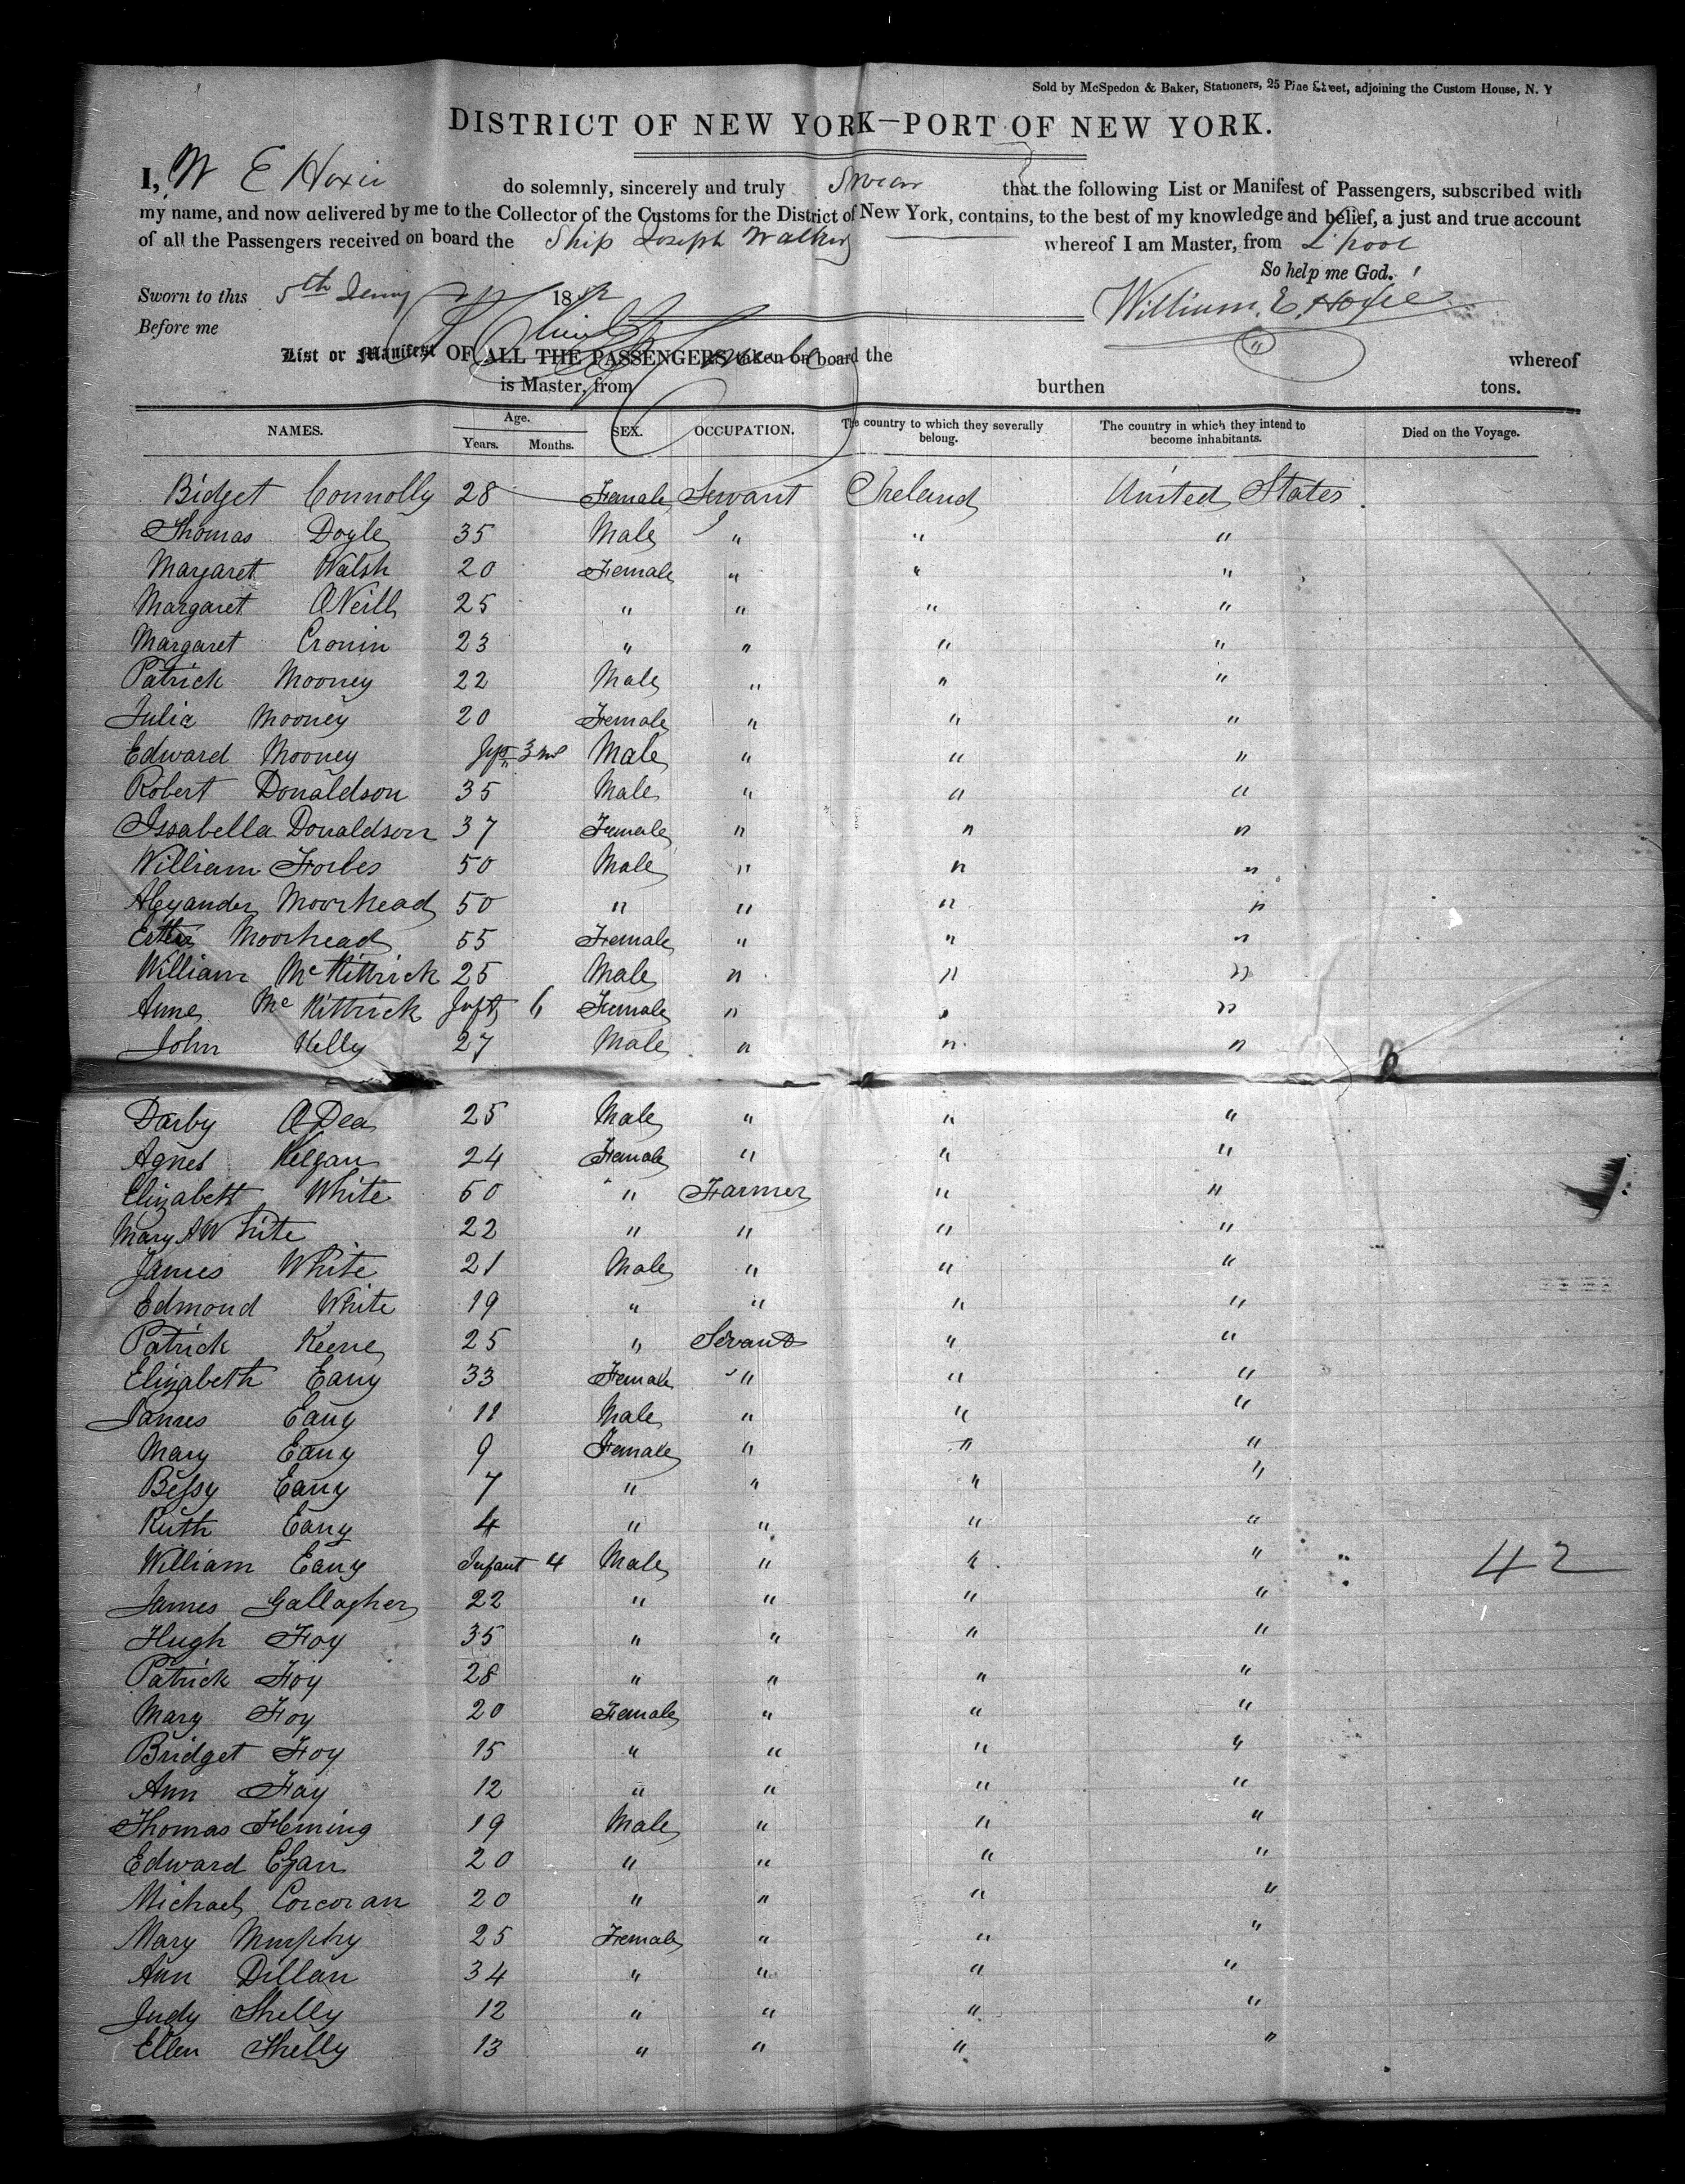 Sold by McSpedon & Baker, Stationers, 25 Pine Street, adjoining the Custom House, N. Y
DISTRICT OF NEW YORK—PORT OF NEW YORK.
I, W E Hoxie do solemnly, sincerely and truly swear that the following List or Manifest of Passengers, subscribed with
my name, and now delivered by me to the Collector of the Customs for the District of New York, contains, to the best of my knowledge and belief, a just and true account
of all the Passengers received on board the Ship Joseph Walker whereof I am Master, from L'pool
So help me God.
Sworn to this 5th 18
William. E. Hoxie
Before me
List or Manifest OF ALL THE PASSENGERS taken on board the whereof
is Master, from burthen tons.
NAMES. Age. Years. Months. SEX. OCCUPATION. The country to which they severally belong. The country in which they intend to become inhabitants. Died on the Voyage.
Bidget Connolly 28 Female Servant Ireland United States
Thomas Doyle 35 Male " " "
Margaret Walsh 20 Female " " "
Margaret ONeill 25 " " " "
Margaret Cronin 23 " " " "
Patrick Mooney 22 Male " " "
Julia Mooney 20 Female " " "
Edward Mooney 3 Male " " "
Robert Donaldson 35 Male " " "
Issabella Donaldson 37 Female " " "
William Forbes 50 Male " " "
Alexander Moorhead 50 " " " "
Moorhead 55 Female " " "
William McKittrick 25 Male " " "
Anne McKittrick Inft 6 Female " " "
John Kelly 27 Male " " "
Darby ODea 25 Male " " "
Agnes Kelgan 24 Female " " "
Elizabeth White 50 " Farmer " "
Mary A White 22 " " " "
James White 21 Male " " "
Edmond White 19 " " " "
Patrick Keene 25 " Servant " "
Elizabeth Eany 33 Female " " "
James Eany 11 Male " " "
Mary Eany 9 Female " " "
Bessy Eany 7 " " " "
Ruth Eany 4 " " " "
William Eany Infant 4 Male " " " 42
James Gallagher 22 " " " "
Hugh Foy 35 " " " "
Patrick Foy 28 " " " "
Mary Foy 20 Female " " "
Bridget Foy 15 " " " "
Ann Foy 12 " " " "
Thomas Fleming 19 Male " " "
Edward Egan 20 " " " "
Michael Corcoran 20 " " " "
Mary Murphy 25 Female " " "
Ann Dillan 34 " " " "
Judy Shelly 12 " " " "
Ellen Shelly 13 " " " "